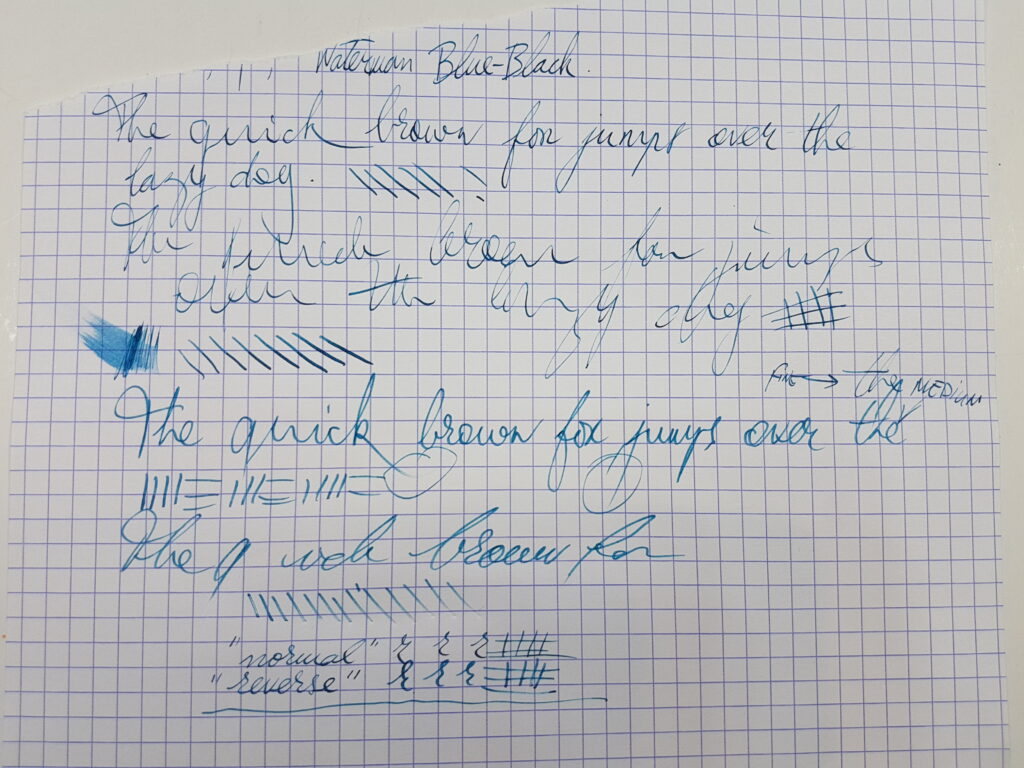 Waterman Blue-Black.
The quick brown fox jumps over the
lazy dog.
The quick brown fox jumps
over the lazy dog
FINE → the MEDIUM
The quick brown fox jumps over the
The quick brown fox
"normal" r r r
"reverse" r r r